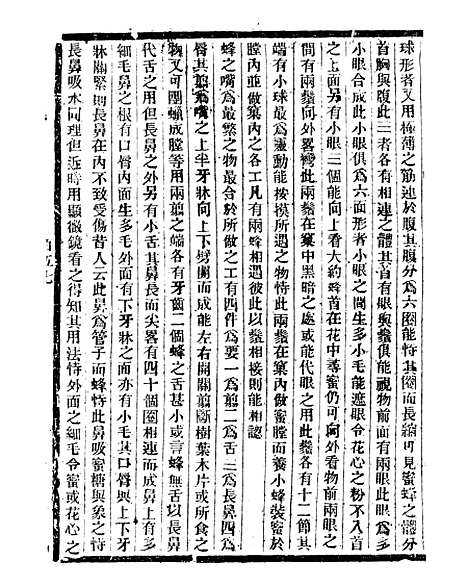 球形者又用極薄之筋連於腹其腹分爲六圈能恃其圈而長縮可見蜜蜂之體分
首胸與腹此三者各有相連之體其首有眼與鬚俱能視物前面有兩眼此眼爲多
小眼合成此小眼俱爲六面形者小眼之間生多小毛能遮眼令花心之粉不入首
之上面另有小眼三個能向上看大約蜂首在花中尋蜜仍可向外看物前兩眼之
間有兩鬚向外畧彎此兩鬚在窠中黑暗之處或能代眼之用此鬚各有十二節其
端有小球最爲靈動能按摸所遇之物恃此鬚在窠內做蜜膛而養小蜂裝蜜於
膛內並做窠內之各工凡有兩蜂相遇彼此以鬚相接則能相認
蜂之嘴爲最繁之物最合於所做之工有四件爲要一爲剪二爲舌三爲長鼻四爲
脣其剪爲嘴之上半牙牀向上下劈開而成能左右開關剪斷樹葉木片或所食之
物又可團蠟成膛等用兩剪之端各有牙齒二個蜂之舌甚小或言蜂無舌以長鼻
代舌之用但長鼻之外另有小舌其鼻長而尖畧有四十個圈相連而成鼻上有多
細毛鼻之根有口脣內面生多毛外面有下牙牀之面亦有小毛其口脣與上下牙
牀關緊則長鼻在內不致受傷昔人云此鼻爲管子而蜂恃此鼻吸蜜糖與象之恃
長鼻吸水同理但近時用顯微鏡看之得知其用法恃外面之細毛令蜜或花心之